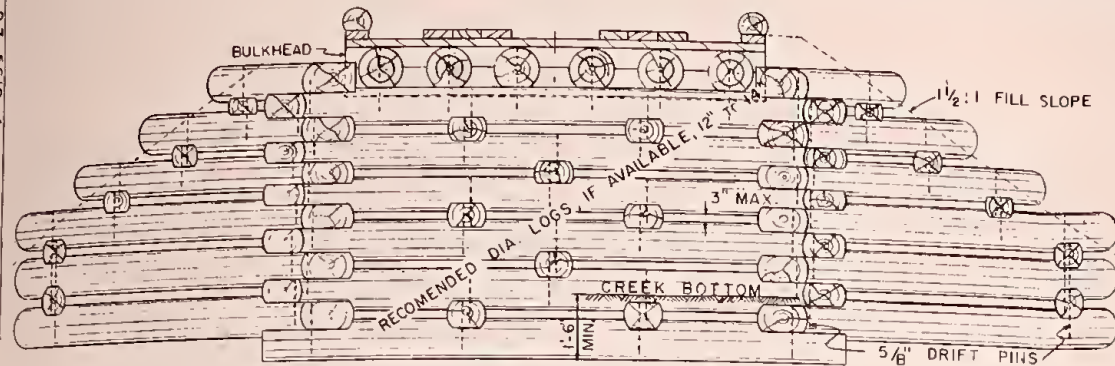 BULKHEAD
1½:1 FILL SLOPE
RECOMENDED DIA. LOGS IF AVAILABLE, 12" TO
3" MAX.
CREEK BOTTOM
1'-6"
MIN.
5/8" DRIFT PINS